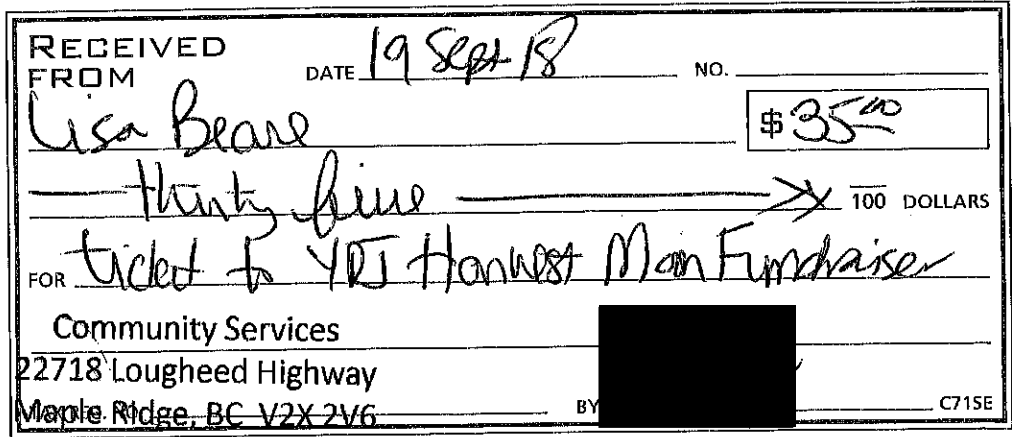 RECEIVED
FROM DATE 19 Sept 18 NO.
Lisa Beare $ 35.00
thirty five 100 DOLLARS
FOR ticket to Harvest Moon Fundraiser
Community Services
22718 Lougheed Highway
Maple Ridge, BC V2X 2V6 BY C715E